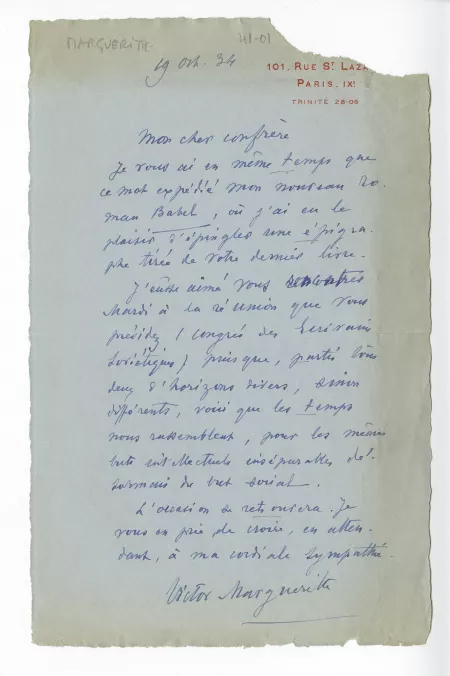 MARGUERITE
41-01
19 Oct. 34
101, RUE St LAZA
PARIS, IXe
TRINITÉ 28-06
Mon cher confrère
Je vous ai en même temps que
ce mot expédié mon nouveau ro-
man Babel, où j'ai eu le
plaisir d'épingler une épigra-
phe tirée de votre dernier livre.
J'eusse aimé vous rencontrer
Mardi à la réunion que vous
présidez (congrès des Ecrivains
Soviétiques) puisque, partis tous
deux d'horizons divers, sinon
différents, voici que les temps
nous rassemblent, pour les mêmes
buts intellectuels inséparables dé-
sormais du but social.
L'occasion se retrouvera. Je
vous en prie de croire, en atten-
dant, à ma cordiale sympathie.
Victor Margueritte